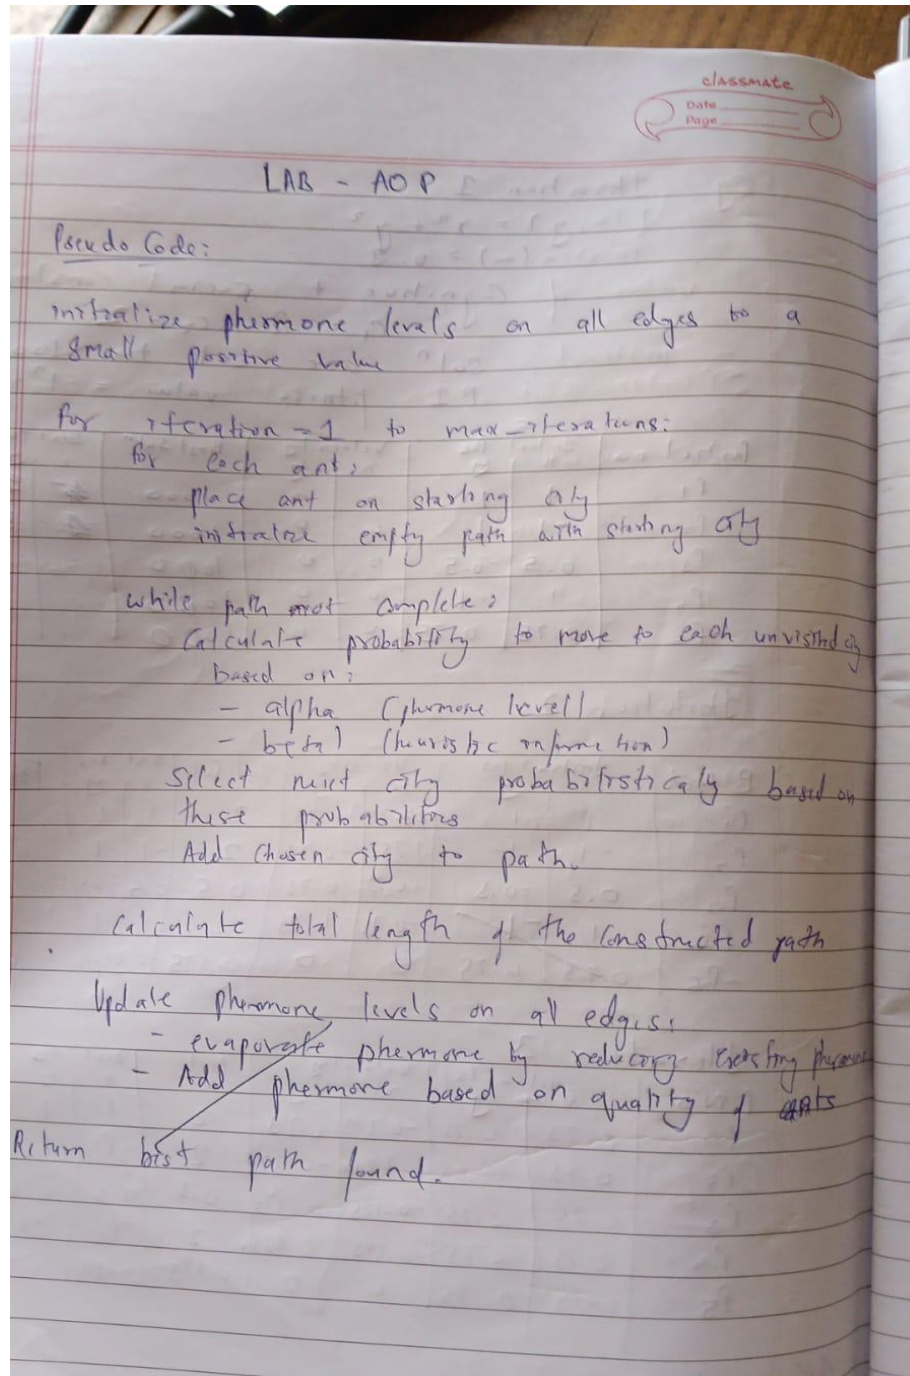 classmate
Date
Page
LAB - AOP
Pseudo Code:
initialize phermone levels on all edges to a
small positive value
for iteration = 1 to max_iterations:
for each ant:
place ant on starting city
initialize empty path with starting city
while path not complete:
Calculate probability to move to each unvisited city
based on:
- alpha (phermone level)
- beta) (heuristic information)
Select next city probabilisticaly based on
these probabilities
Add chosen city to path.
Calculate total length of the constructed path
Update phermone levels on all edges:
- evaporate phermone by reducing existing phermone
- Add phermone based on quality of ants
Return best path found.